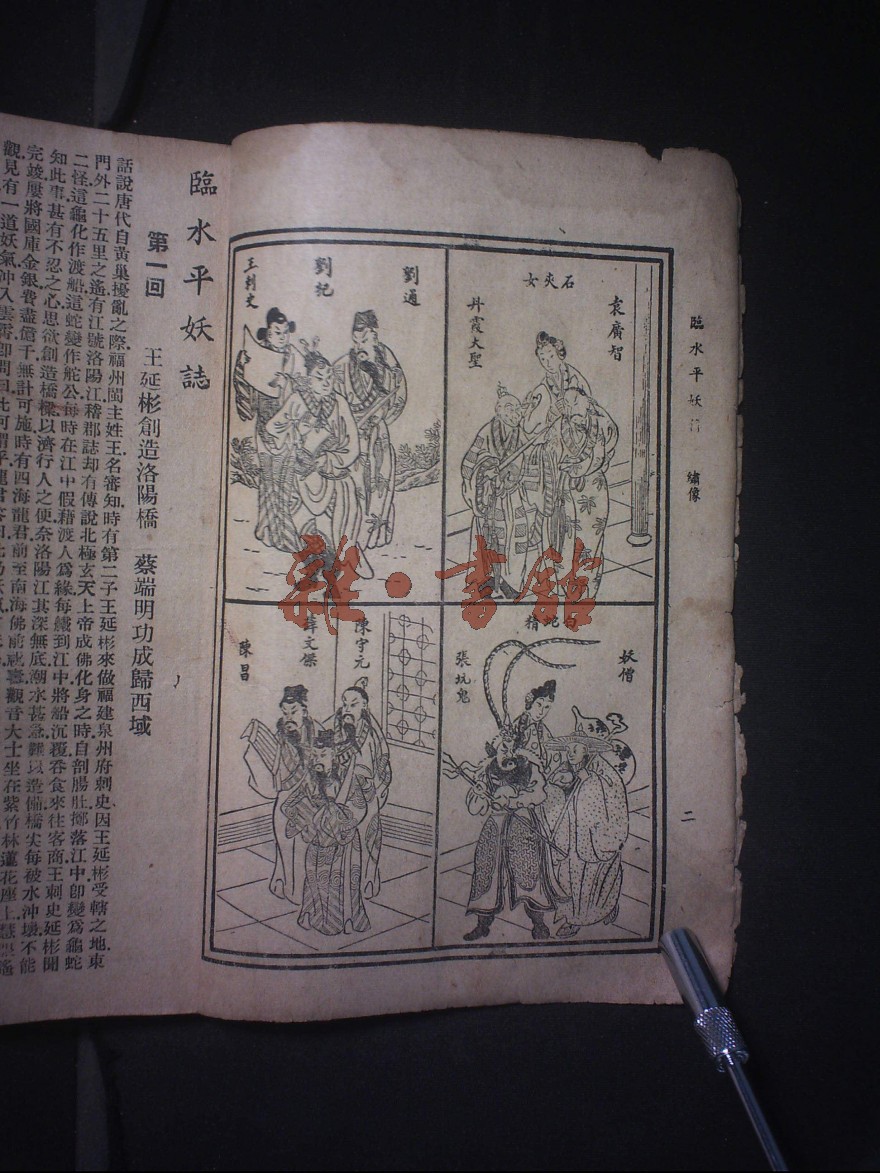 臨水平妖誌
繡像
二
袁廣智
石夾女
丹霞大聖
劉通
劉杞
王刺史
妖僧
白蛇精
張坑鬼
陳守元
薛文傑
陳昌
雜·書館
臨水平妖誌
第一回 王延彬創造洛陽橋 蔡端明功成歸西域
話說唐代自黃巢擾亂之際福州閩主姓王名審知時有第二子王延彬來做福建泉州府刺史因王延彬受轄之地東
門外二十五里之遙有江號洛陽江稽郡誌却有傳說北極玄天上帝成佛化身之時自剖腸肚擲落江中卽變爲龜蛇
二怪這龜化作渡船這蛇變作舵公每時在江中假藉渡人爲緣每載到江中將船沉覆吞食來往客商王刺史延彬聞
知此事甚有不忍之心思欲創造橋樑以濟行人之便奈洛陽江其深無底潮水甚急難以造備橋尖每被水沖壞不能
完竣屢將國庫金銀費盡億千無計可施時有四海龍君前至南海佛前祝壽觀音大士坐在紫竹林蓮花座上慧眼遙
觀見有一道妖氣沖入雲霄卽問曰